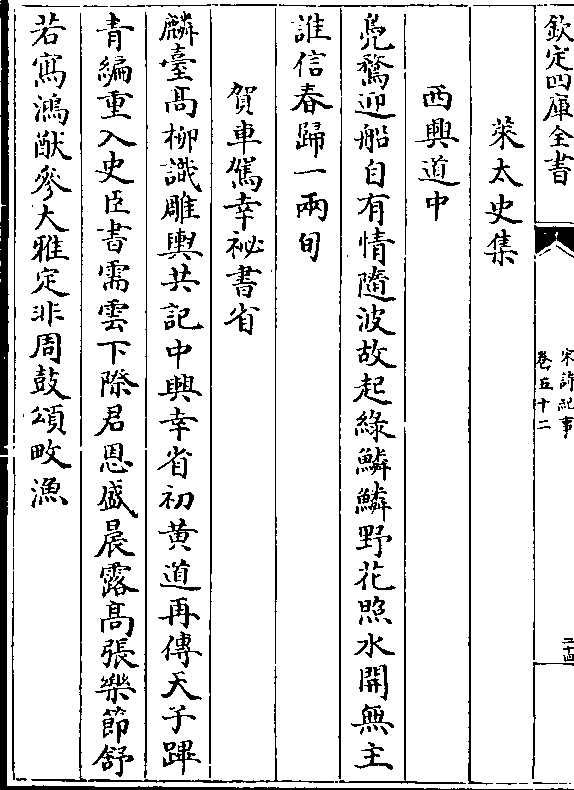 欽定四庫全書
宋詩紀事
卷五十二
二十四
萊太史集
西興道中
鳧鷖迎船自有情隨波故起綠鱗鱗野花照水開無主
誰信春歸一兩旬
賀車駕幸祕書省
麟臺髙柳識雕輿共記中興幸省初黄道再傳天子蹕
青編重入史臣書需雲下際君恩盛晨露髙張樂節舒
若寫鴻猷參大雅定非周鼓頌畋漁